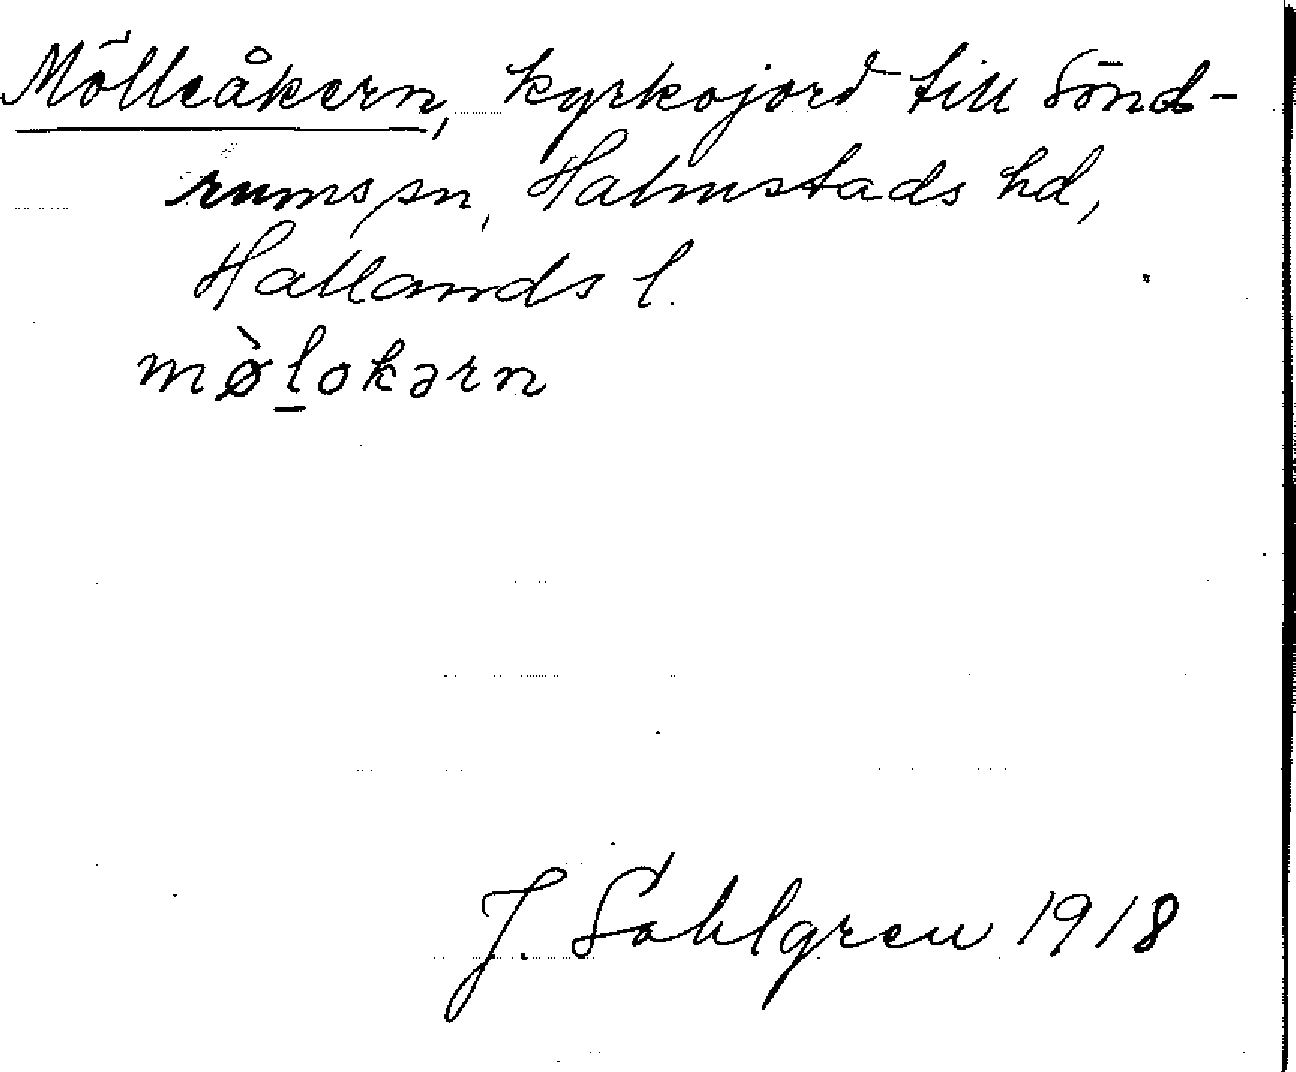 Mölleåkern, kyrkojord till Sönd-
rums sn, Halmstads hd,
Hallands l.
mø̀l̠okərn
J. Sahlgren 1918